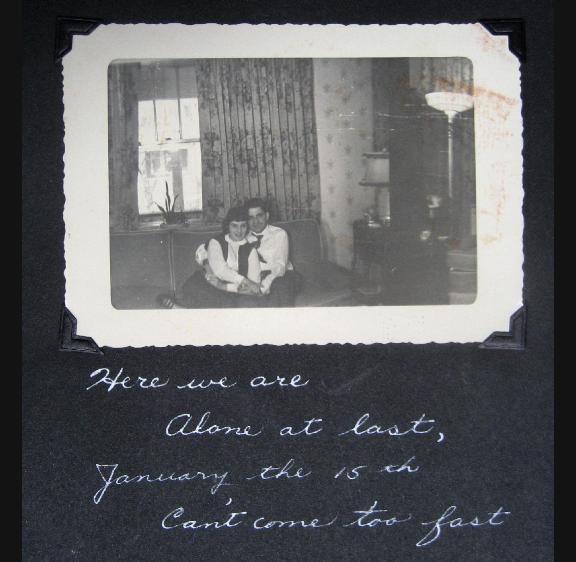 Here we are
Alone at last,
January the 15 th
Can't come too fast